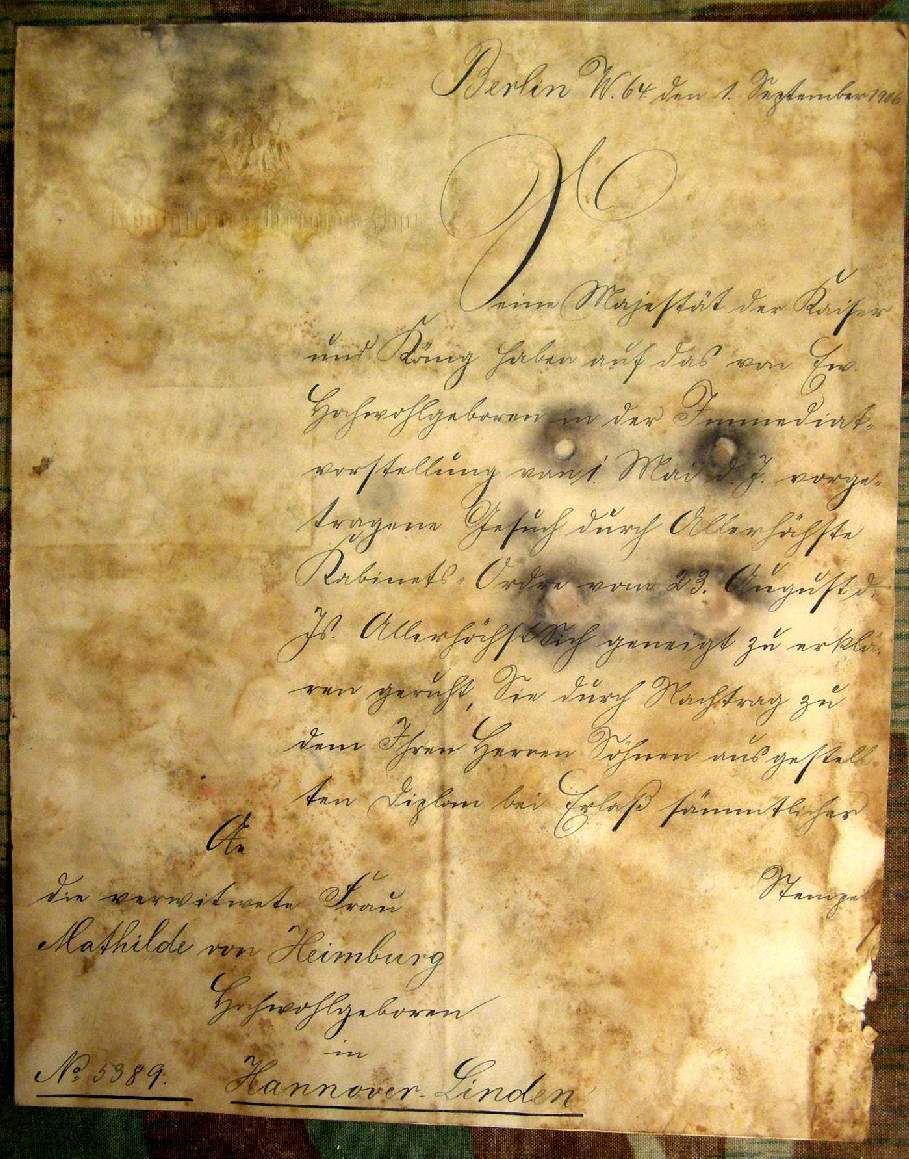 Berlin W. 64 den 1. September 1906
Seine Majestät der Kaiser
und König haben auf das von Ew.
Hochwohlgeboren in der Immediat-
vorstellung vom 1. Mai d. J. vorge-
tragene Gesuch durch Allerhöchste
Kabinets-Ordre vom 23. August d.
Js. Allerhöchst Sich geneigt zu erklä-
ren geruht, Sie durch Nachtrag zu
dem Ihren Herren Söhnen ausgestell-
ten Diplom bei Erlaß sämmtlicher
Stempel
An
die verwitwete Frau
Mathilde von Heimburg
Hochwohlgeboren
in
Hannover-Linden
No. 5389.